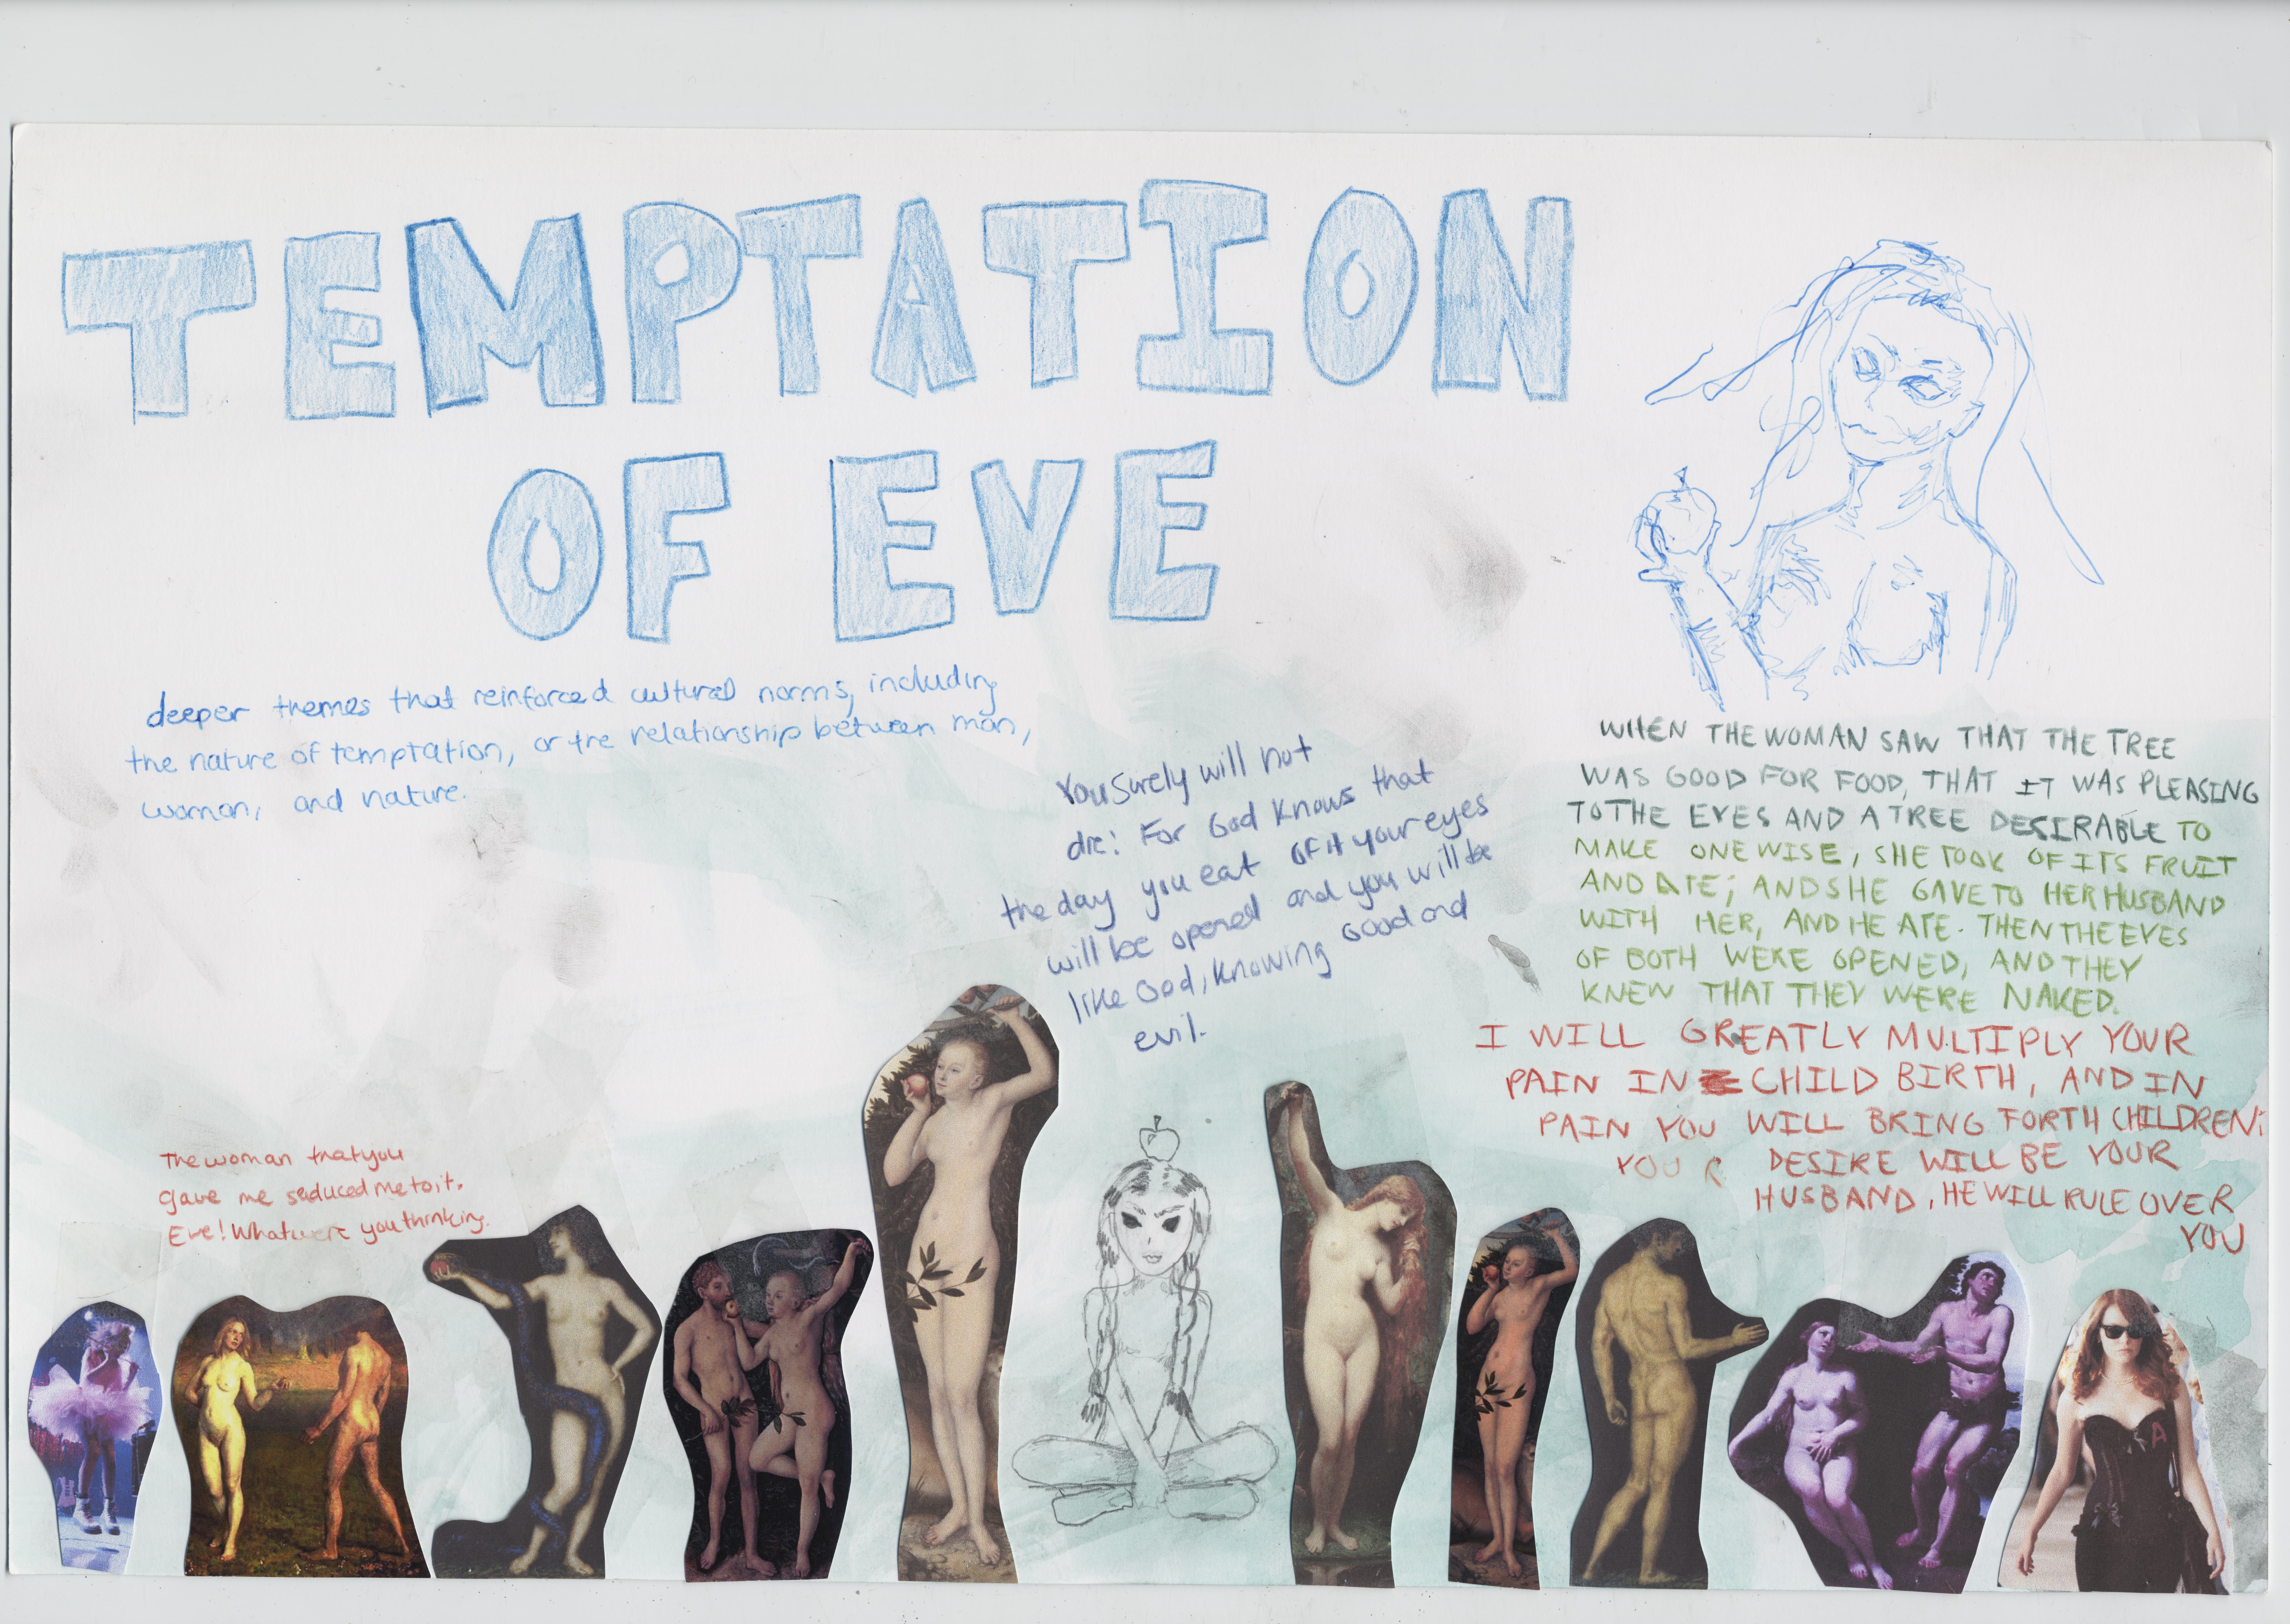 TEMPTATION
OF EVE
deeper themes that reinforced cultural norms, including
the nature of temptation, or the relationship between man,
woman, and nature.
You surely will not
die: For God knows that
the day you eat of it your eyes
will be opened and you will be
like God, knowing good and
evil.
WHEN THE WOMAN SAW THAT THE TREE
WAS GOOD FOR FOOD, THAT IT WAS PLEASING
TO THE EYES AND A TREE DESIRABLE TO
MAKE ONE WISE, SHE TOOK OF ITS FRUIT
AND ATE; AND SHE GAVE TO HER HUSBAND
WITH HER, AND HE ATE. THEN THE EYES
OF BOTH WERE OPENED, AND THEY
KNEW THAT THEY WERE NAKED.
I WILL GREATLY MULTIPLY YOUR
PAIN IN CHILD BIRTH, AND IN
PAIN YOU WILL BRING FORTH CHILDREN;
YOUR DESIRE WILL BE YOUR
HUSBAND, HE WILL RULE OVER
YOU
The woman that you
gave me seduced me to it.
Eve! What were you thinking.
A